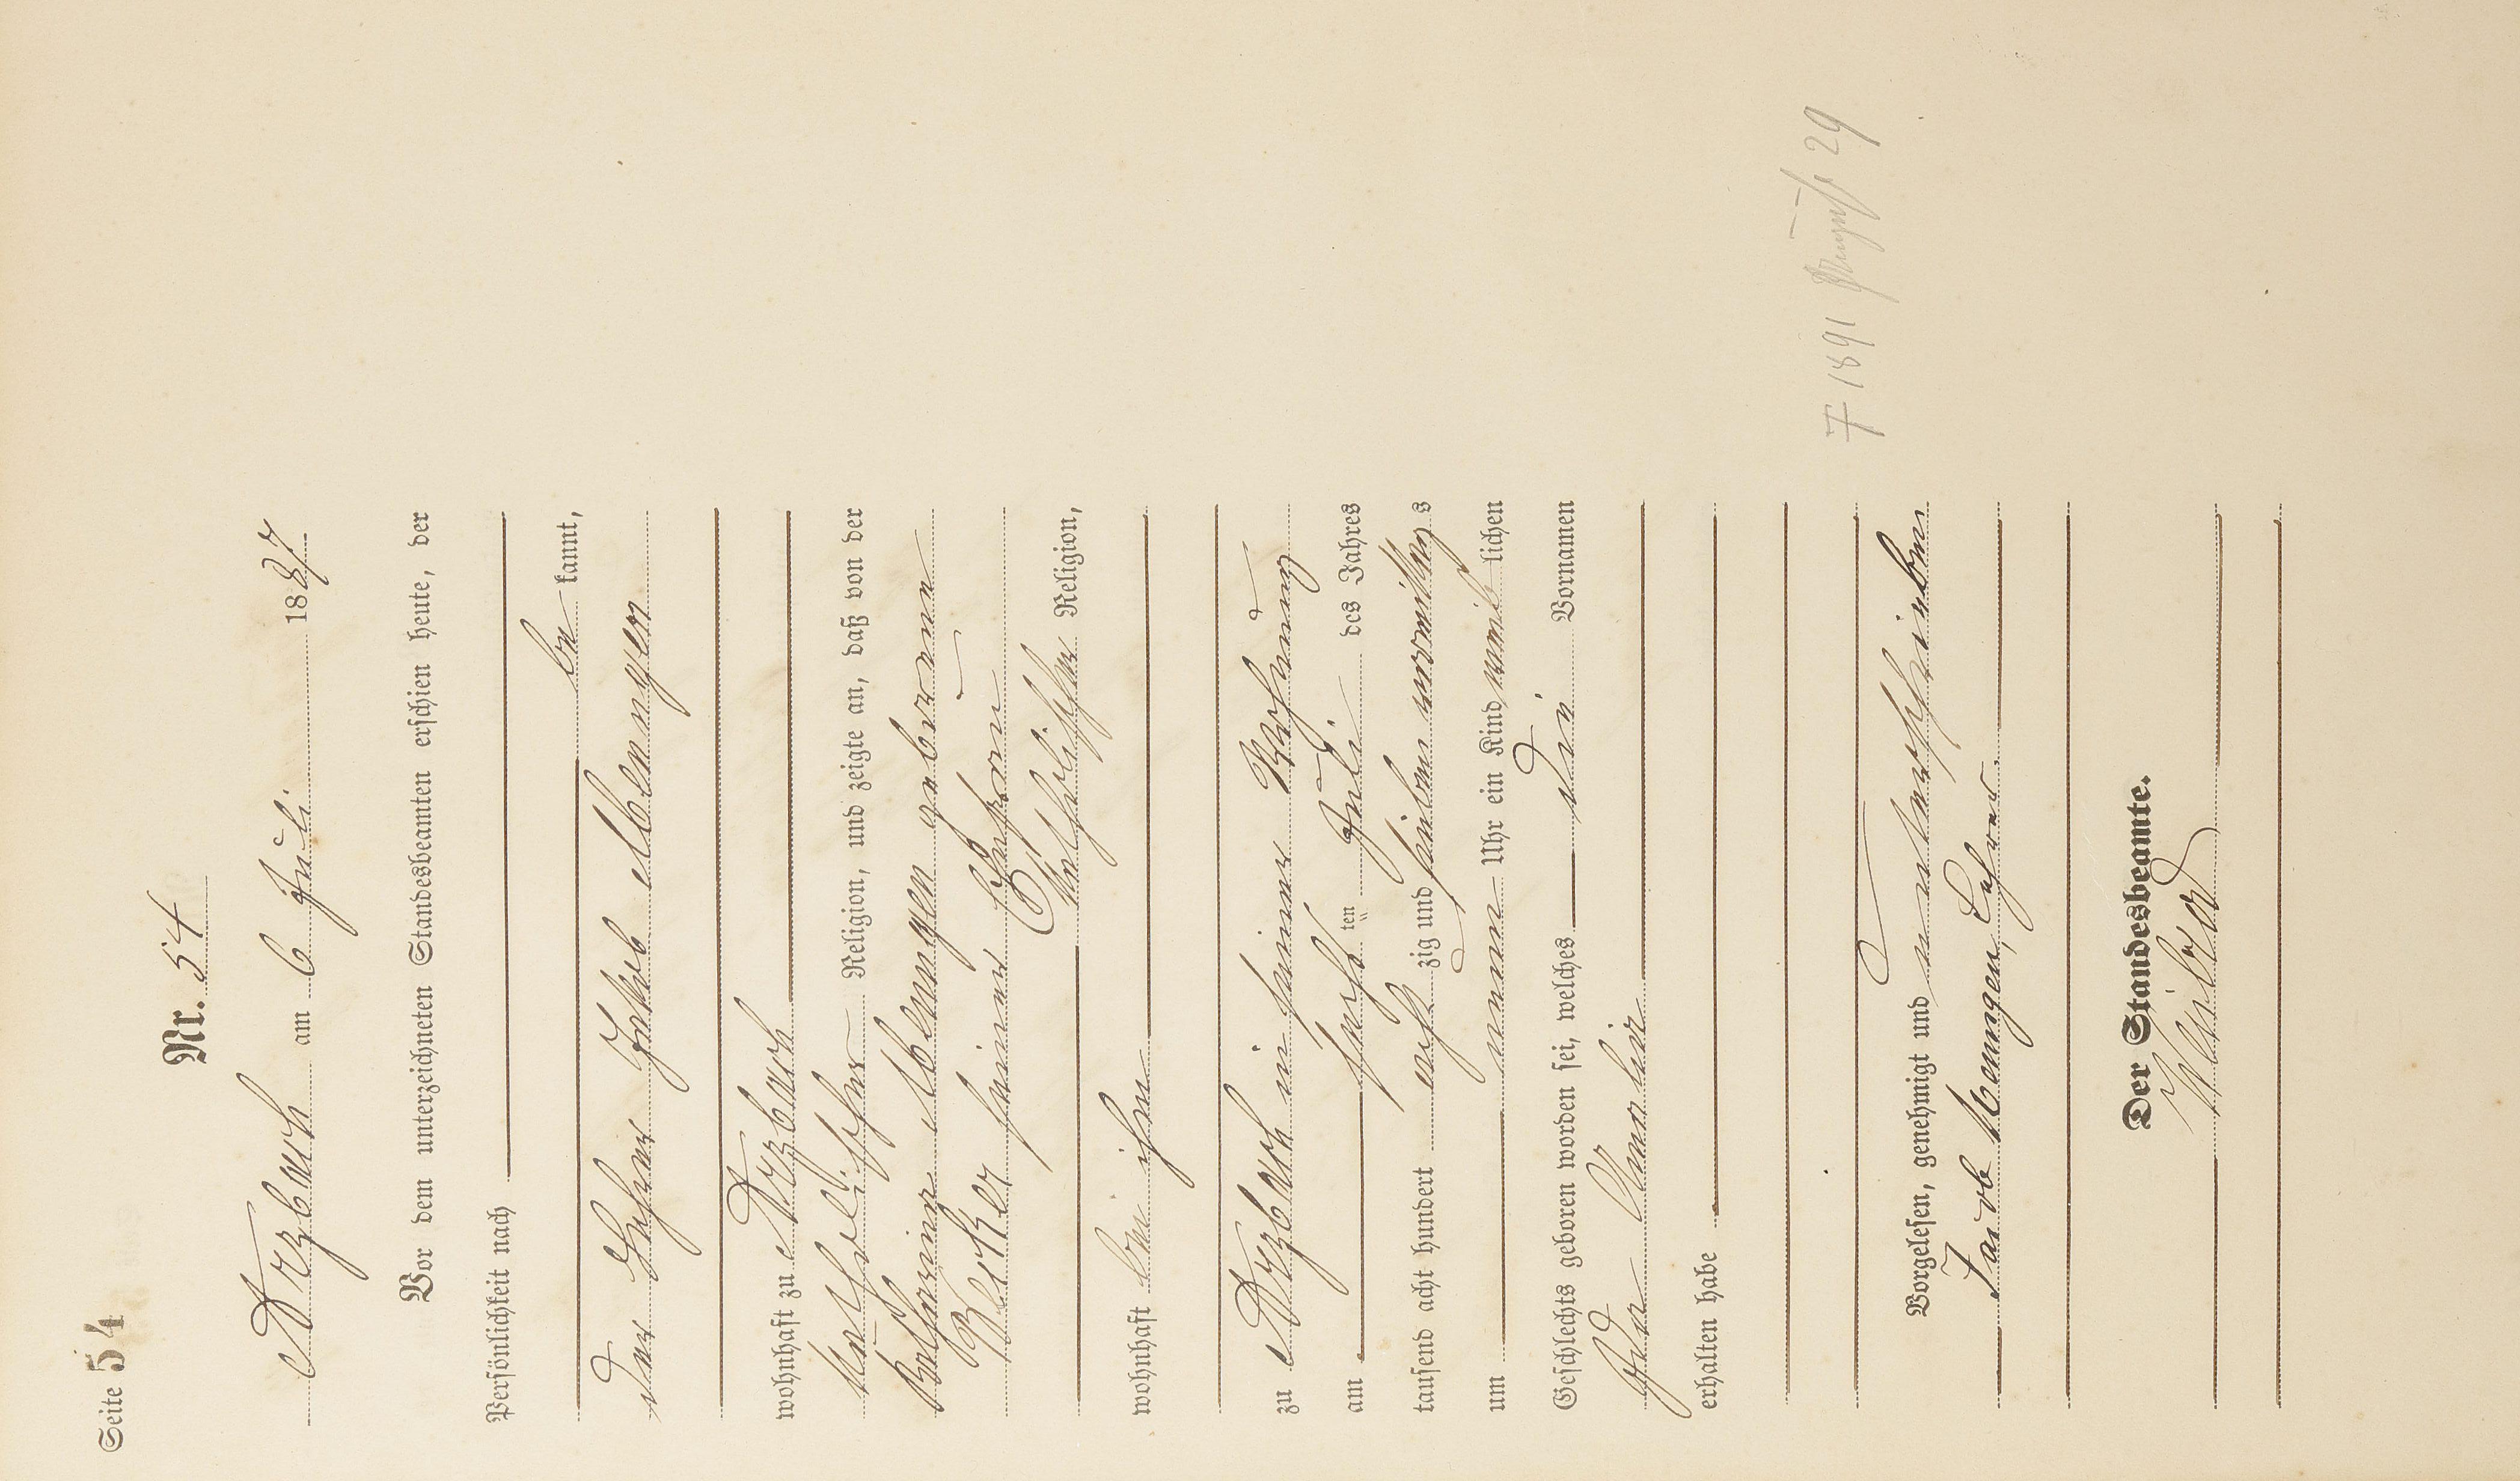 Seite 54
Nr. 54
Arzbach am 6 Juli 1887
Vor dem unterzeichneten Standesbeamten erschien heute, der
Persönlichkeit nach
be kannt,
der Lehrer Jakob Menngen
wohnhaft zu Arzbach
katholischer Religion, und zeigte an, daß von der
Katharina Menngen geborene
Becker seiner Ehefrau
katholischer Religion,
wohnhaft bei ihm
zu Arzbach in seiner Wohnung
am fünf ten Juli des Jahres
tausend acht hundert acht zig und sieben vormittags
um neun Uhr ein Kind weib lichen
Geschlechts geboren worden sei, welches die Vornamen
Ida Amalia
erhalten habe
† 1891 29
Vorgelesen, genehmigt und unterschrieben
Jacob Menngen, Lehrer.
Der Standesbeamte.